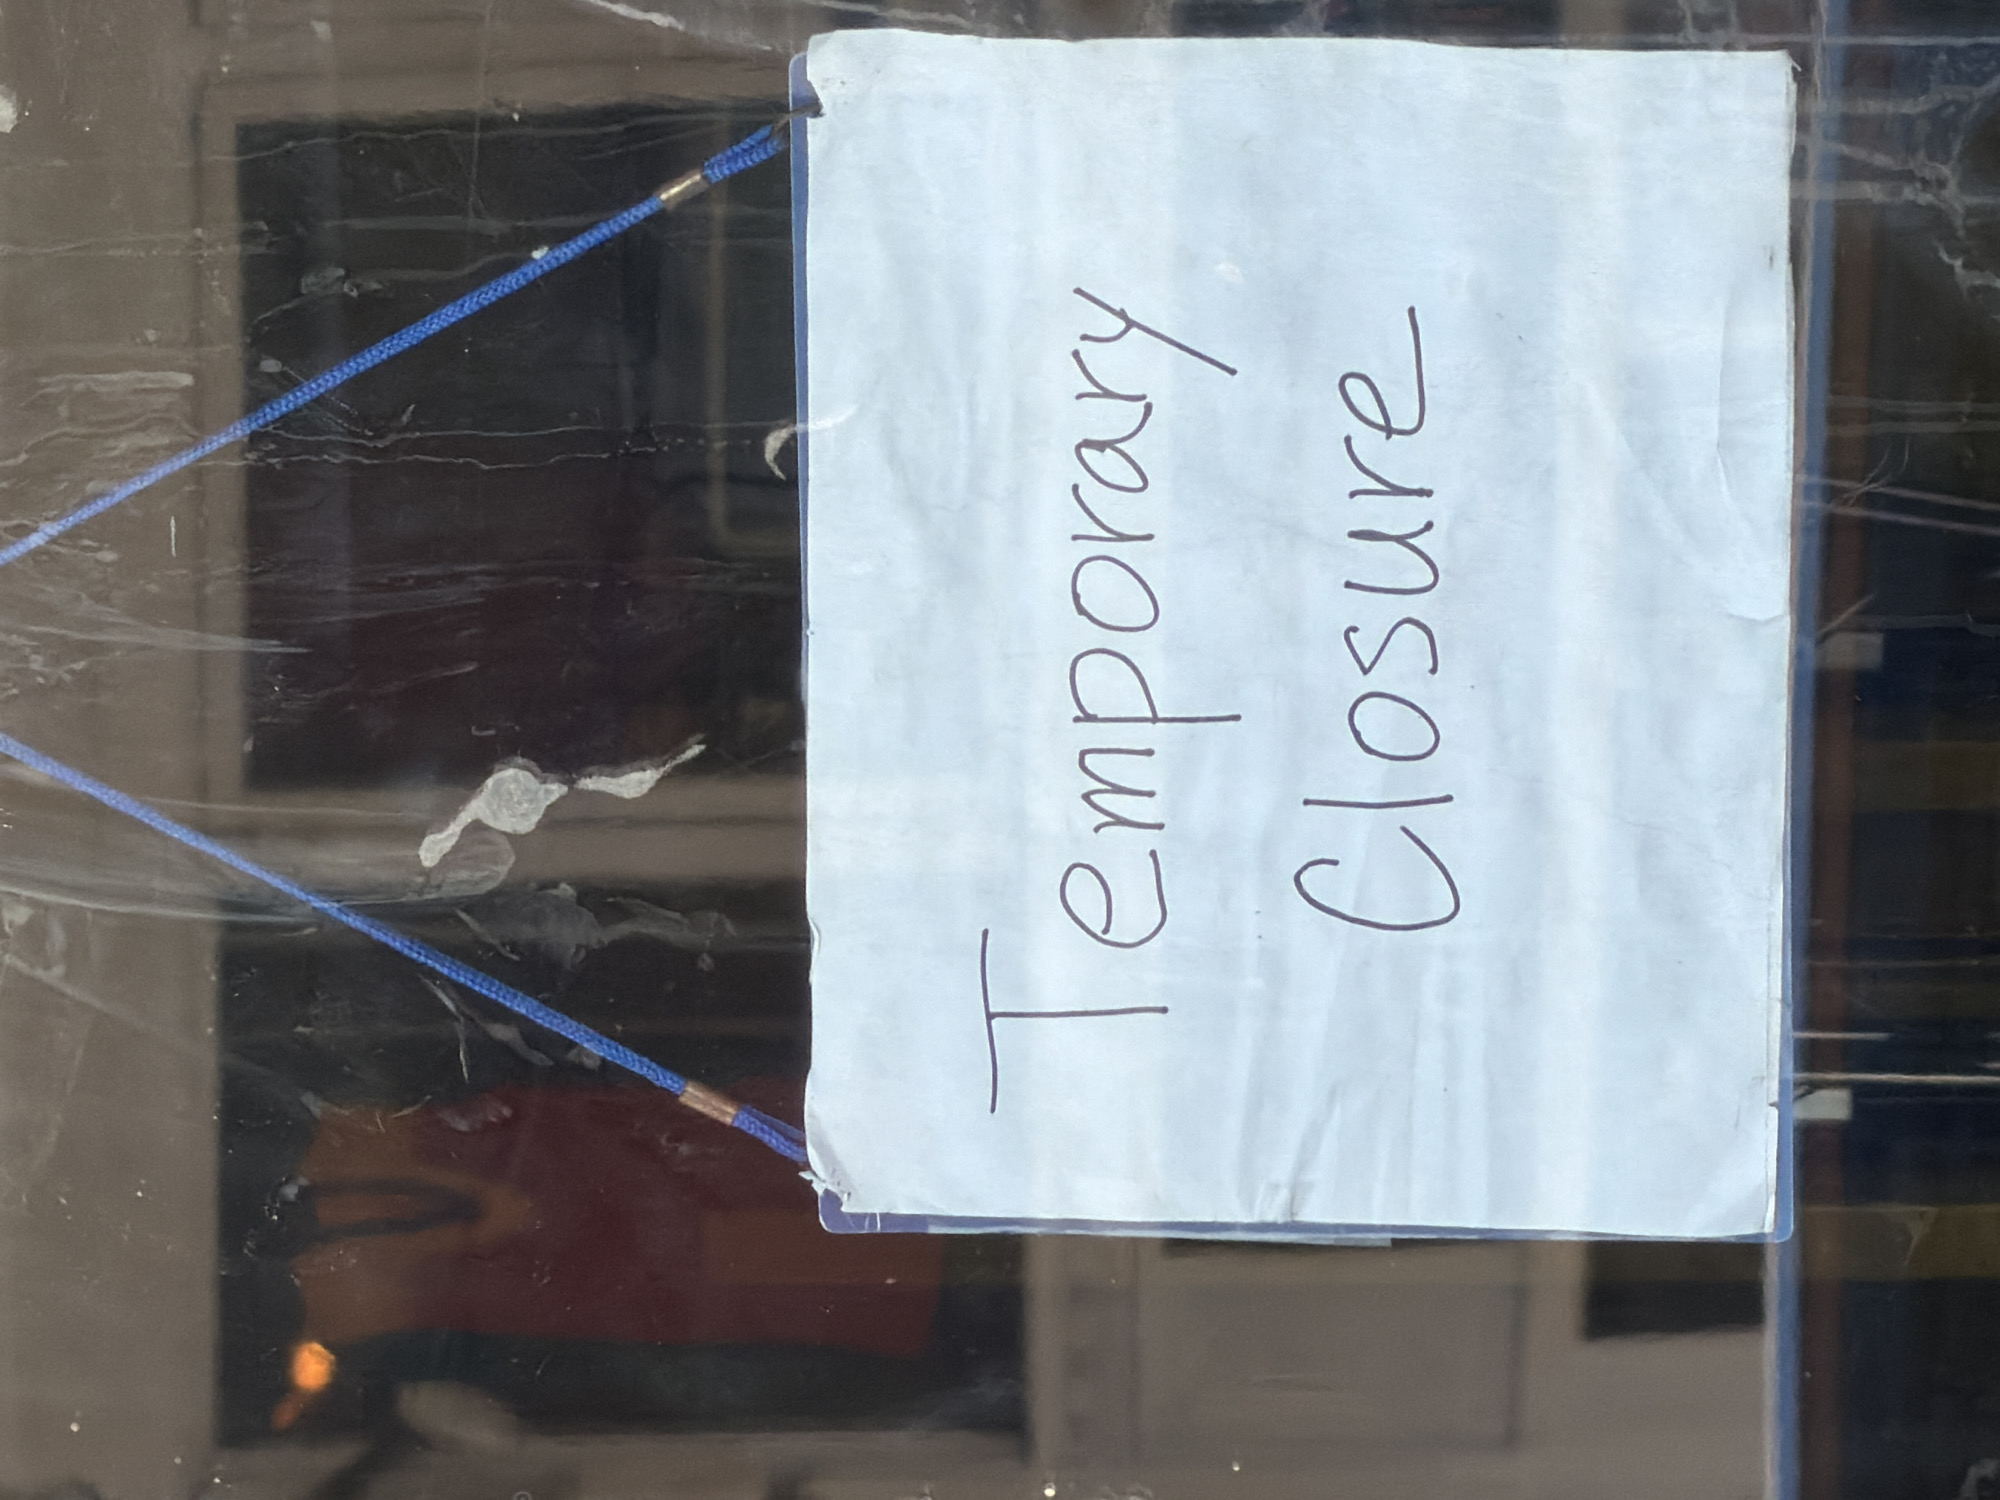 Temporary
Closure